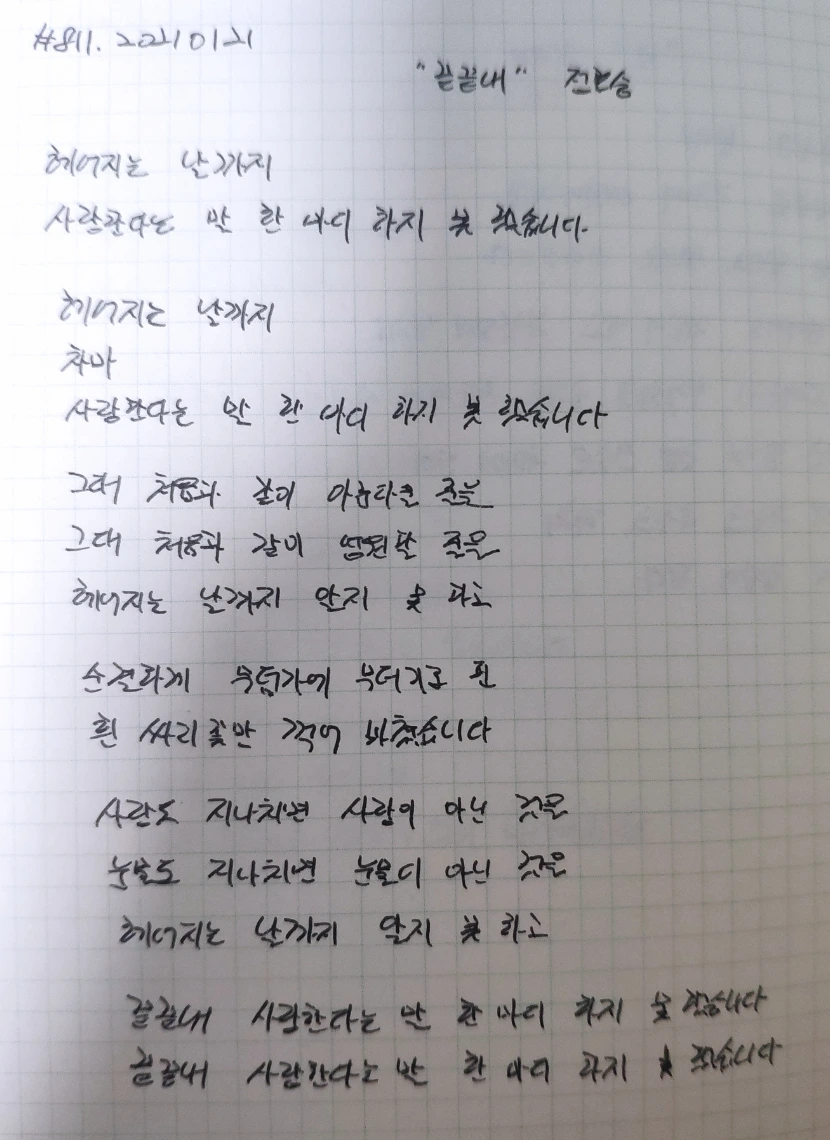 #811. 20210121
"끝끝내" 정호승
헤어지는 날까지
사랑한다는 말 한 마디 하지 못 했습니다.
헤어지는 날까지
차마
사랑한다는 말 한 마디 하지 못 했습니다
그대 처음과 같이 아름다운 줄을
그대 처음과 같이 영원할 줄을
헤어지는 날까지 알지 못 하고
순결하게 무덤가에 무더기로 핀
흰 싸리꽃만 꺾어 바쳤습니다
사랑도 지나치면 사랑이 아닌 것을
눈물도 지나치면 눈물이 아닌 것을
헤어지는 날까지 알지 못 하고
끝끝내 사랑한다는 말 한 마디 하지 못 했습니다
끝끝내 사랑한다는 말 한 마디 하지 못 했습니다